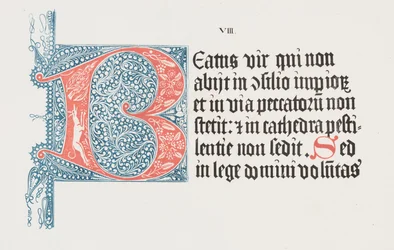 VIII.
Beatus vir qui non
abijt in ꝯsilio impioꝝ
et in via peccatorū non
stetit: ⁊ in cathedra pesti-
lentie non sedit. Sed
in lege domini volūtas